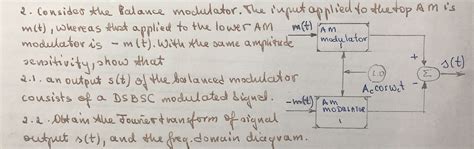 2. Consider the Balance modulator. The input applied to the top AM is
m(t), whereas that applied to the lower AM
modulator is - m(t). With the same amplitude
sensitivity, show that
2.1. an output s(t) of the balanced modulator
consists of a DSBSC modulated signal.
2.2. Obtain the Fourier transform of signal
output s(t), and the freq. domain diagram.
m(t)
AM
modulator
+
s(t)
Σ
-
A_c cos ω_c t
-m(t)
AM
MODULATOR